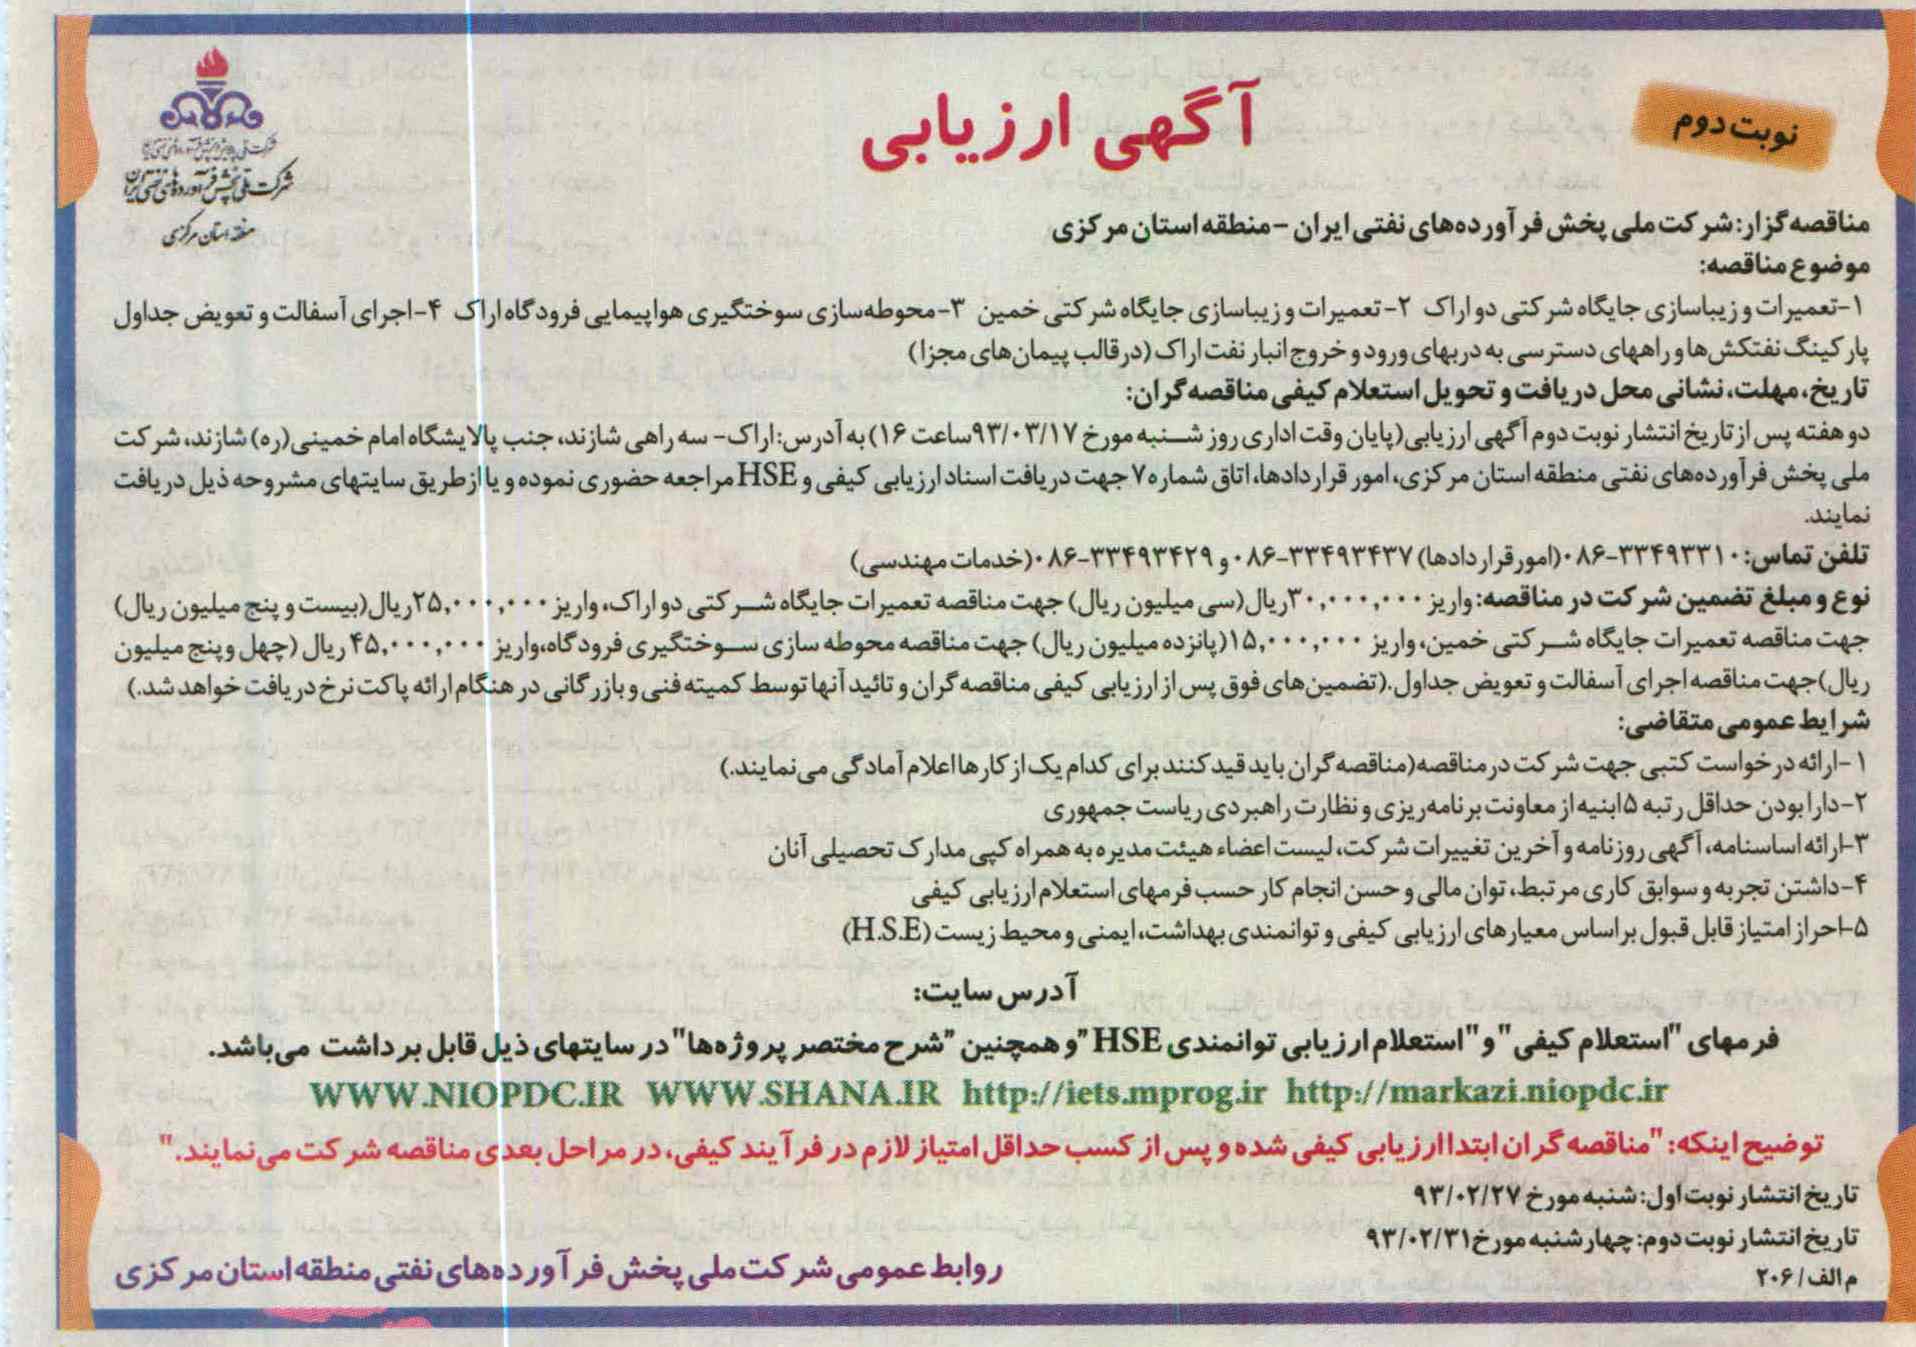 نوبت دوم
آگهی ارزیابی
شرکت ملی پالایش و پخش فرآورده‌های نفتی ایران
شرکت ملی پخش فرآورده‌های نفتی ایران
منطقه استان مرکزی
مناقصه گزار: شرکت ملی پخش فرآورده‌های نفتی ایران -منطقه استان مرکزی
موضوع مناقصه:
۱-تعمیرات و زیباسازی جایگاه شرکتی دو اراک ۲-تعمیرات و زیباسازی جایگاه شرکتی خمین ۳-محوطه‌سازی سوختگیری هواپیمایی فرودگاه اراک ۴-اجرای آسفالت و تعویض جداول
پارکینگ نفتکش‌ها و راههای دسترسی به دربهای ورود و خروج انبار نفت اراک (در قالب پیمان‌های مجزا)
تاریخ، مهلت، نشانی محل دریافت و تحویل استعلام کیفی مناقصه‌گران:
دو هفته پس از تاریخ انتشار نوبت دوم آگهی ارزیابی(پایان وقت اداری روز شنبه مورخ ۹۳/۰۳/۱۷ساعت ۱۶) به آدرس: اراک- سه راهی شازند، جنب پالایشگاه امام خمینی(ره) شازند، شرکت
ملی پخش فرآورده‌های نفتی منطقه استان مرکزی، امور قراردادها، اتاق شماره ۷ جهت دریافت اسناد ارزیابی کیفی و HSE مراجعه حضوری نموده و یا از طریق سایتهای مشروحه ذیل دریافت
نمایند.
تلفن تماس: ۳۳۴۹۳۳۱۰-۰۸۶(امور قراردادها) ۳۳۴۹۳۴۳۷-۰۸۶ و ۳۳۴۹۳۴۲۹-۰۸۶(خدمات مهندسی)
نوع و مبلغ تضمین شرکت در مناقصه: واریز ۳۰,۰۰۰,۰۰۰ریال(سی میلیون ریال) جهت مناقصه تعمیرات جایگاه شرکتی دو اراک، واریز ۲۵,۰۰۰,۰۰۰ریال(بیست و پنج میلیون ریال)
جهت مناقصه تعمیرات جایگاه شرکتی خمین، واریز ۱۵,۰۰۰,۰۰۰(پانزده میلیون ریال) جهت مناقصه محوطه سازی سوختگیری فرودگاه،واریز ۴۵,۰۰۰,۰۰۰ ریال (چهل و پنج میلیون
ریال)جهت مناقصه اجرای آسفالت و تعویض جداول.(تضمین‌های فوق پس از ارزیابی کیفی مناقصه گران و تائید آنها توسط کمیته فنی و بازرگانی در هنگام ارائه پاکت نرخ دریافت خواهد شد.)
شرایط عمومی متقاضی:
۱-ارائه درخواست کتبی جهت شرکت در مناقصه(مناقصه‌گران باید قید کنند برای کدام یک از کارها اعلام آمادگی می‌نمایند.)
۲-دارا بودن حداقل رتبه ۵ ابنیه از معاونت برنامه‌ریزی و نظارت راهبردی ریاست جمهوری
۳-ارائه اساسنامه، آگهی روزنامه و آخرین تغییرات شرکت، لیست اعضاء هیئت مدیره به همراه کپی مدارک تحصیلی آنان
۴-داشتن تجربه و سوابق کاری مرتبط، توان مالی و حسن انجام کار حسب فرمهای استعلام ارزیابی کیفی
۵-احراز امتیاز قابل قبول بر اساس معیارهای ارزیابی کیفی و توانمندی بهداشت، ایمنی و محیط زیست (H.S.E)
آدرس سایت:
فرمهای "استعلام کیفی" و "استعلام ارزیابی توانمندی HSE" و همچنین "شرح مختصر پروژه‌ها" در سایتهای ذیل قابل برداشت می‌باشد.
WWW.NIOPDC.IR WWW.SHANA.IR http://iets.mprog.ir http://markazi.niopdc.ir
توضیح اینکه: "مناقصه گران ابتدا ارزیابی کیفی شده و پس از کسب حداقل امتیاز لازم در فرآیند کیفی، در مراحل بعدی مناقصه شرکت می‌نمایند."
تاریخ انتشار نوبت اول: شنبه مورخ ۹۳/۰۲/۲۷
تاریخ انتشار نوبت دوم: چهارشنبه مورخ ۹۳/۰۲/۳۱
م الف/ ۲۰۶
روابط عمومی شرکت ملی پخش فرآورده‌های نفتی منطقه استان مرکزی